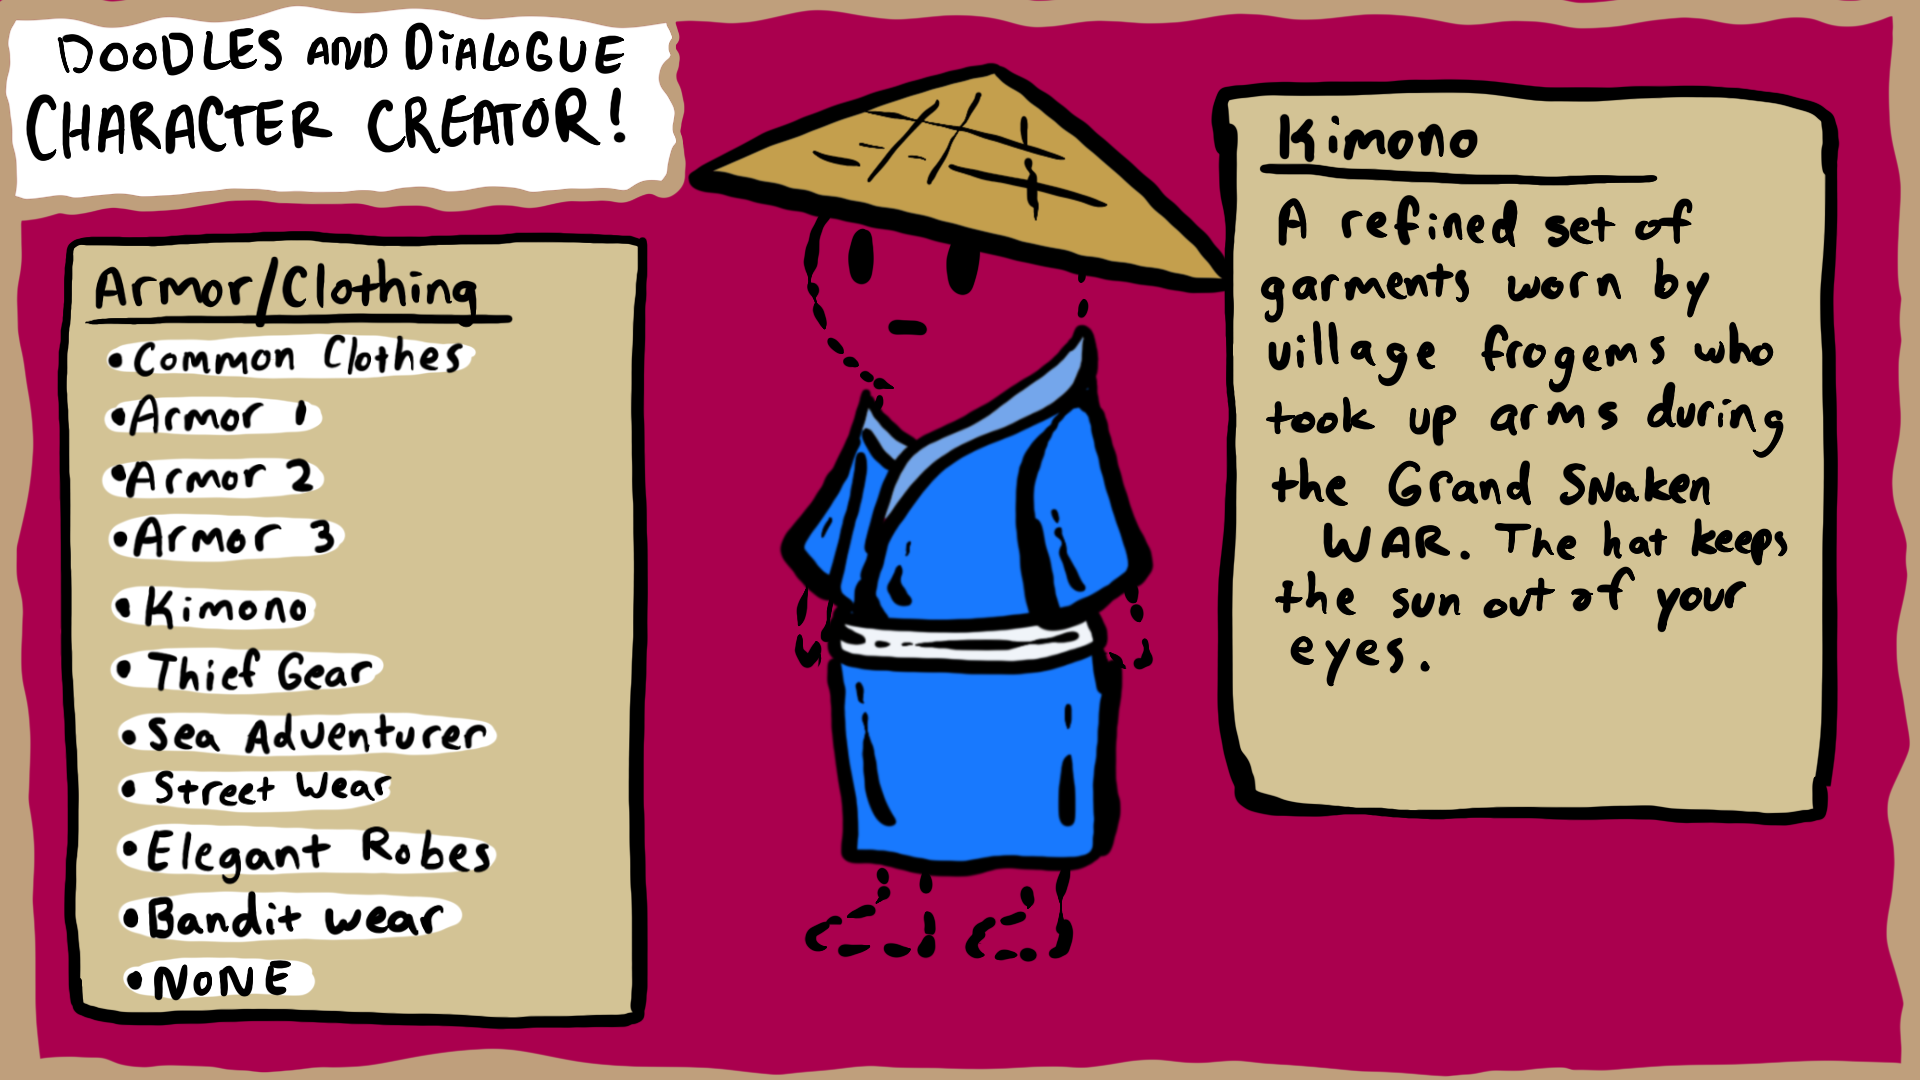 DOODLES AND DiALOGUE
CHARACTER CREATOR!
Armor/Clothing
• Common Clothes
• Armor 1
• Armor 2
• Armor 3
• Kimono
• Thief Gear
• Sea Adventurer
• Street Wear
• Elegant Robes
• Bandit wear
• NONE
Kimono
A refined set of
garments worn by
village frogems who
took up arms during
the Grand SNaken
WAR. The hat keeps
the sun out of your
eyes.